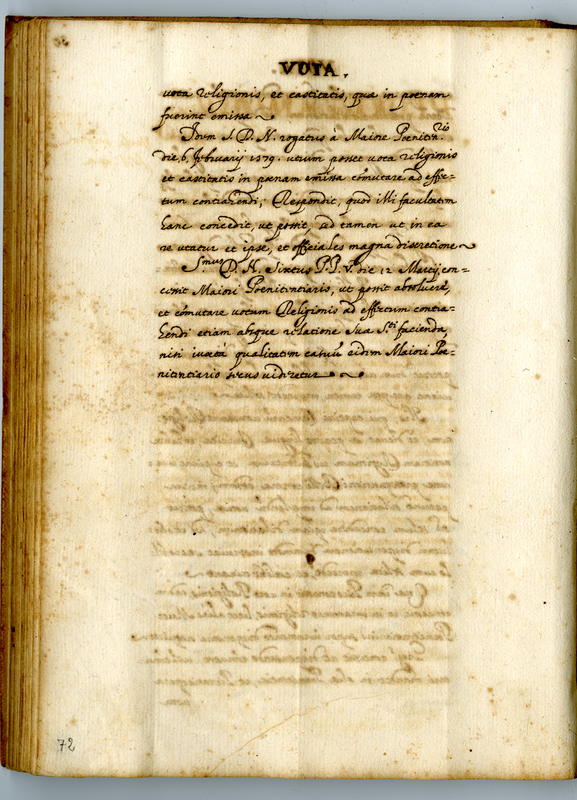 VOTA.
vota religionis, et castitatis, quæ in pœnam
fuerint emissa
Idem S. D. N. rogatus à Maiore Pœnitenrio
die 6. februarij 1579. utrum posset vota religionis
et castitatis in pœnam emissa cõmutare ad effe-
ctum contrahendi; Respondit, quod illi facultatem
hanc concedit, ut possit, sed tamen ut in ea
re utatur et ipse, et officiales magna discretione
S.mus D. N. Sixtus P.P. V. die 12 Martij con-
cessit Maiori Poenitentiario, ut possit absoluere,
et cõmutare votum Religionis ad effectum contra-
hendi etiam absque relatione Suæ S.ti facienda,
nisi iuxta qualitatem casuũ eidem Maiori Poe-
nitentiario secus uideretur
72